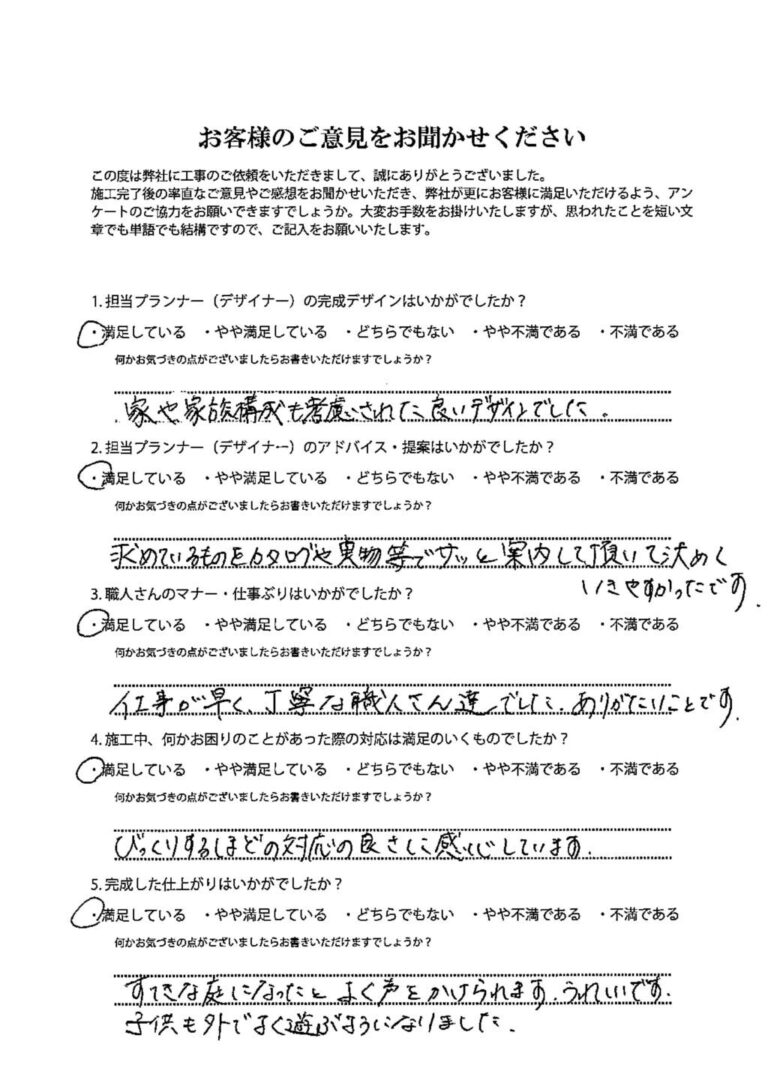 お客様のご意見をお聞かせください
この度は弊社に工事のご依頼をいただきまして、誠にありがとうございました。
施工完了後の率直なご意見やご感想をお聞かせいただき、弊社が更にお客様に満足いただけるよう、アン
ケートのご協力をお願いできますでしょうか。大変お手数をお掛けいたしますが、思われたことを短い文
章でも単語でも結構ですので、ご記入をお願いいたします。
1. 担当プランナー（デザイナー）の完成デザインはいかがでしたか？
・満足している ・やや満足している ・どちらでもない ・やや不満である ・不満である
何かお気づきの点がございましたらお書きいただけますでしょうか？
家や家族構成も考慮された良いデザインでした。
2. 担当プランナー（デザイナー）のアドバイス・提案はいかがでしたか？
・満足している ・やや満足している ・どちらでもない ・やや不満である ・不満である
何かお気づきの点がございましたらお書きいただけますでしょうか？
求めているものをカタログや実物等でサッと案内して頂いて決めて
いきやすかったです。
3. 職人さんのマナー・仕事ぶりはいかがでしたか？
・満足している ・やや満足している ・どちらでもない ・やや不満である ・不満である
何かお気づきの点がございましたらお書きいただけますでしょうか？
仕事が早く、丁寧な職人さん達でした。ありがたいことです。
4. 施工中、何かお困りのことがあった際の対応は満足のいくものでしたか？
・満足している ・やや満足している ・どちらでもない ・やや不満である ・不満である
何かお気づきの点がございましたらお書きいただけますでしょうか？
びっくりするほどの対応の良さに感心しています。
5. 完成した仕上がりはいかがでしたか？
・満足している ・やや満足している ・どちらでもない ・やや不満である ・不満である
何かお気づきの点がございましたらお書きいただけますでしょうか？
すてきな庭になったと よく声をかけられます。うれしいです。
子供も外でよく遊ぶようになりました。